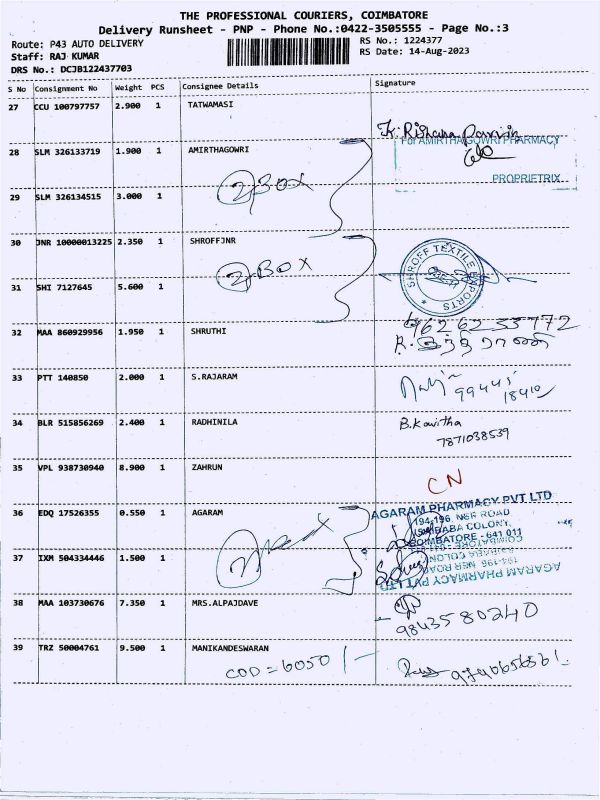 THE PROFESSIONAL COURIERS, COIMBATORE
Delivery Runsheet - PNP - Phone No.:0422-3505555 - Page No.:3
Route: P43 AUTO DELIVERY
RS No.: 1224377
Staff: RAJ KUMAR
RS Date: 14-Aug-2023
DRS No.: DCJB122437703
S No Consignment No Weight PCS Consignee Details Signature
27 CCU 100797757 2.900 1 TATWAMASI
28 SLM 326133719 1.900 1 AMIRTHAGOWRI
For AMIRTHAGOWRI PHARMACY
2 BOX
PROPRIETRIX
29 SLM 326134515 3.000 1
30 JNR 10000013225 2.350 1 SHROFFJNR
2 BOX
SHROFF TEXTILE EXPORTS
31 SHI 7127645 5.600 1
32 MAA 860929956 1.950 1 SHRUTHI
33 PTT 140850 2.000 1 S.RAJARAM
99445
18410
34 BLR 515856269 2.400 1 RADHINILA
B.Kavitha
7871038539
35 VPL 938730940 8.900 1 ZAHRUN
CN
36 EDQ 17526355 0.550 1 AGARAM
AGARAM PHARMACY PVT LTD
194-196, NSR ROAD
SAIBABA COLONY,
COIMBATORE - 641 011
37 IXM 504334446 1.500 1
AGARAM PHARMACY PVT LTD
194-196, NSR ROAD
38 MAA 103730676 7.350 1 MRS.ALPAJDAVE
9843580240
39 TRZ 50004761 9.500 1 MANIKANDESWARAN
COD = 6050/-